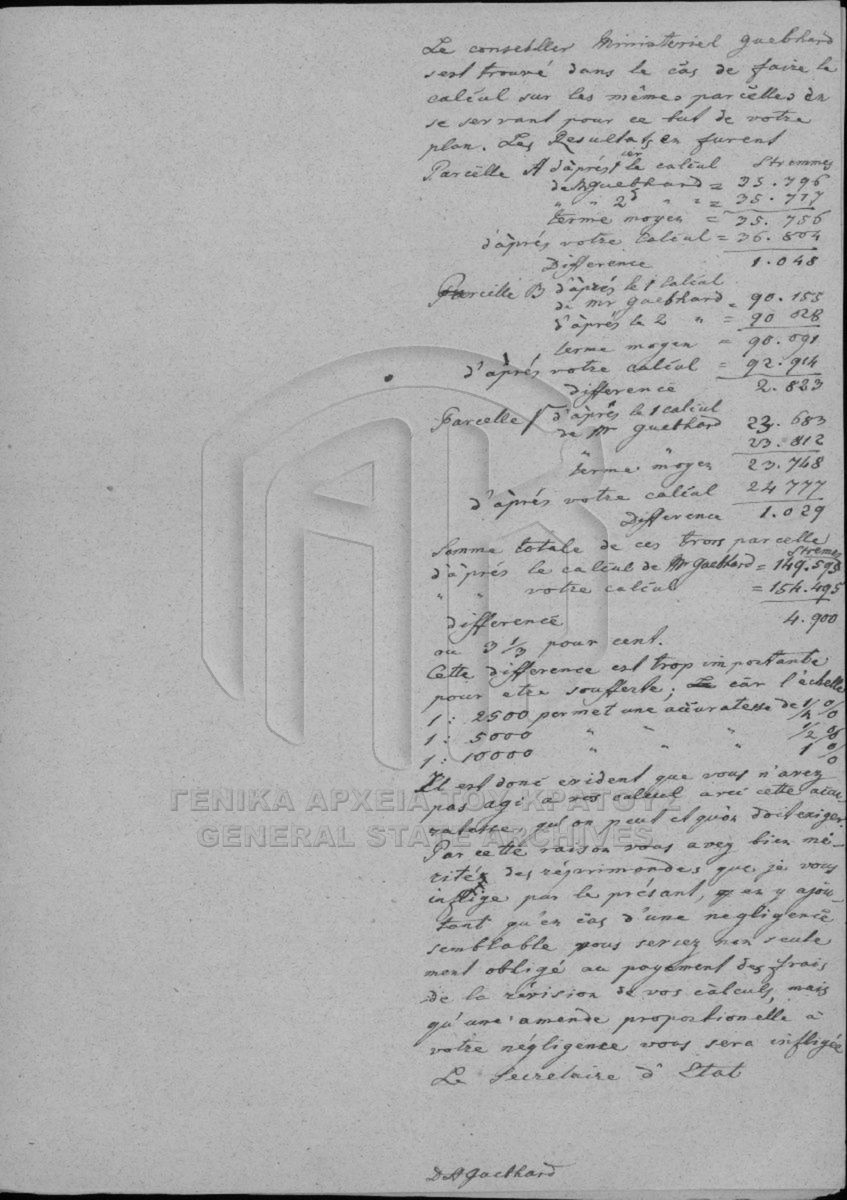 Le conseiller Ministeriel Guebhard
s'est trouvé dans le cas de faire le
calcul sur les mêmes parcelles en
se servant pour ce but de votre
plan. Les Resultats en furent
Parcelle A d'après 1er le calcul Stremmes
de Mr Guebhard = 35.796
" " 2d " " = 35.717
terme moyen = 35.756
d'après votre calcul = 36.804
Difference 1.048
Parcelle B d'après le 1 calcul
de Mr Guebhard = 90.155
d'après le 2 " = 90 028
terme moyen = 90.091
d'après votre calcul = 92.914
difference 2.823
Parcelle Γ d'après le 1 calcul
de Mr Guebhard 23.683
" " 23.812
terme moyen 23.748
d'après votre calcul 24 777
Difference 1.029
Somme totale de ces trois parcelle
Stremes
d'après le calcul de Mr Guebhard = 149.595
" " votre calcul = 154.495
difference 4.900
ou 3 1/3 pour cent.
Cette difference est trop importante
pour etre soufferte; car l'échelle
1 : 2500 permet une accuratesse de 1/4 0/0
1 : 5000 " " " 1/2 0/0
1 : 10000 " " " 1 0/0
Il est donc evident que vous n'avez
pas agi a vos calcul avec cette accu-
ΓΕΝΙΚΑ ΑΡΧΕΙΑ ΤΟΥ ΚΡΑΤΟΥΣ
ratesse, qu'on peut et qu'on doit exiger.
GENERAL STATE ARCHIVES
Par cette raison vous avez bien mé-
rité des réprimondes que je vous
inflige par le présant, en y ajou-
tant qu'en cas d'une negligence
semblable vous seriez non seule
ment obligé au payement des frais
de la révision de vos calculs, mais
qu'une amende proportionelle à
votre négligence vous sera infligée
Le Secretaire d'Etat
D A Guebhard